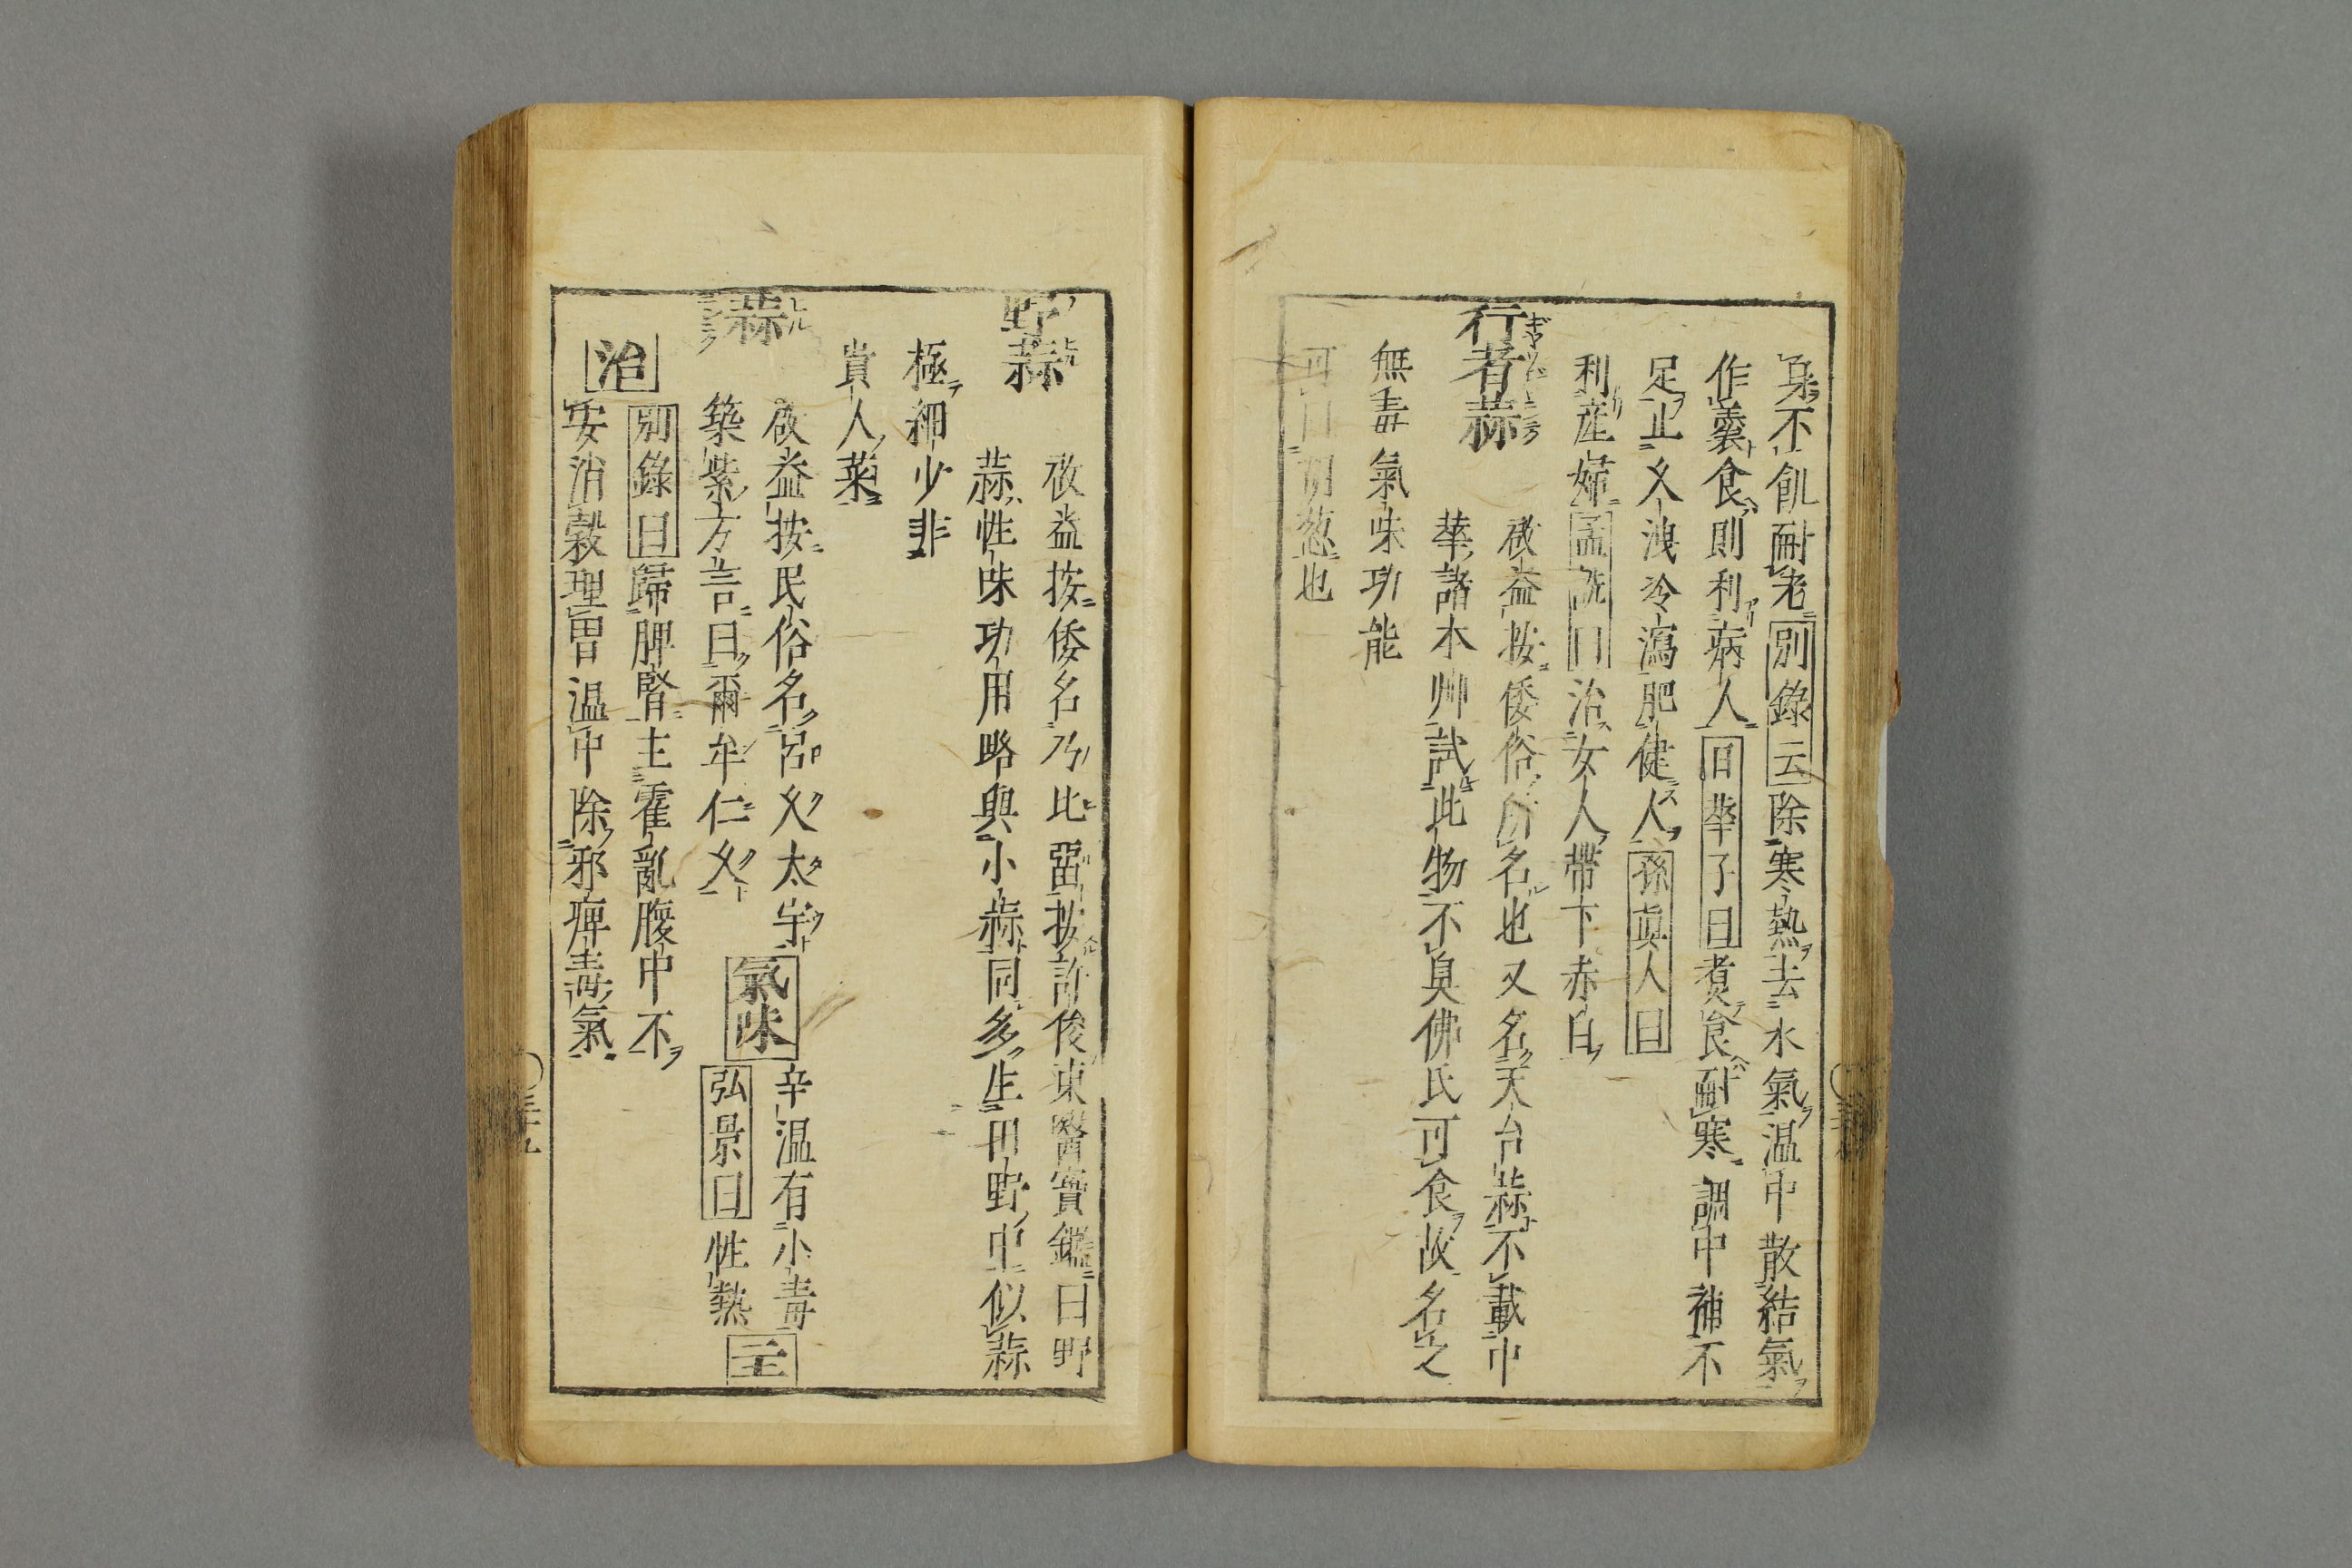 身不飢耐老別錄云除寒熱去水氣温中散結氣
作羹食則利病人日華子曰煮食耐寒調中補不
足止久洩冷瀉肥健人孫眞人曰
利産婦孟詵曰治女人帶下赤白
行者蒜
啟益按倭俗所名也又名天台蒜不載中
華諸本艸試此物不臭佛氏可食故名之
無毒氣味功能
可口胡葱也
野蒜
啟益按倭名乃比畱按許俊東醫寶鑑曰野
蒜性味功用略與小蒜同多生田野中似蒜
極細少非
貴人菜
蒜
啟益按民俗名呂久太宇
築紫方言曰爾牟仁久
氣味
辛温有小毒
弘景曰性熱
主
治
別錄曰歸脾腎主霍亂腹中不
安消穀理胃温中除邪痺毒氣
三十九